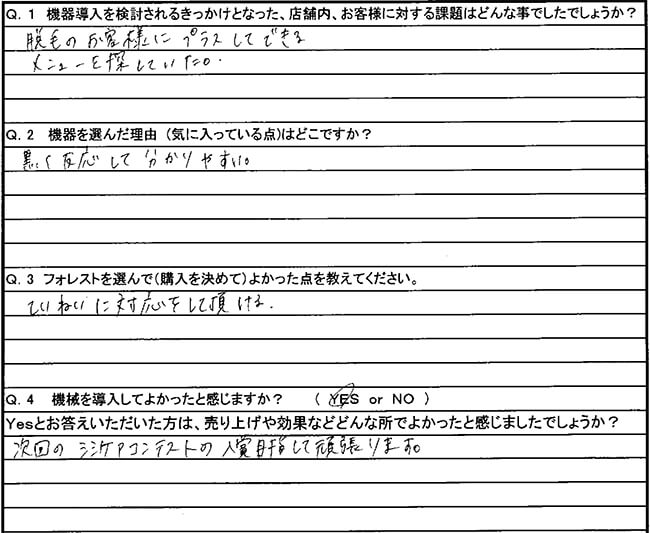 Q. 1 機器導入を検討されるきっかけとなった、店舗内、お客様に対する課題はどんな事でしたでしょうか?
脱毛のお客様にプラスしてできる
メニューを探していた。
Q. 2 機器を選んだ理由 (気に入っている点)はどこですか?
黒く反応して分かりやすい。
Q. 3 フォレストを選んで(購入を決めて)よかった点を教えてください。
ていねいに対応をして頂ける.
Q. 4 機械を導入してよかったと感じますか? ( YES or NO )
Yesとお答えいただいた方は、売り上げや効果などどんな所でよかったと感じましたでしょうか?
次回のシミケアコンテストの入賞目指して頑張ります。